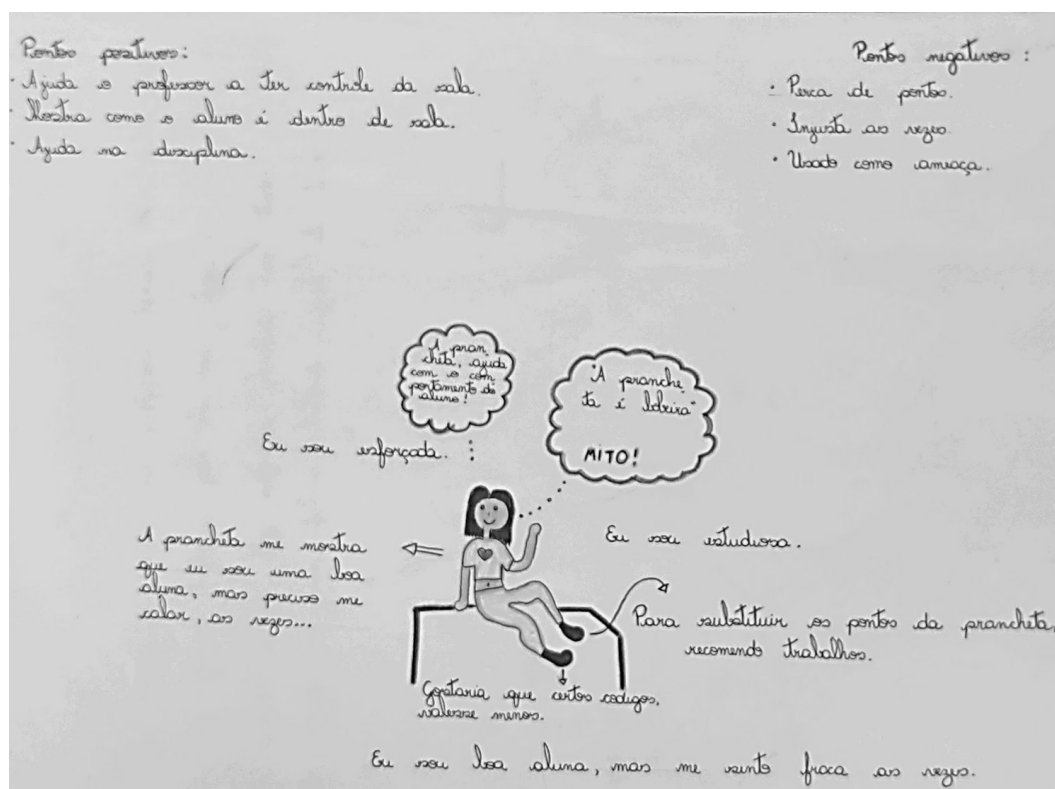 Pontos positivos:
· Ajuda o professor a ter controle da sala.
· Mostra como o aluno é dentro de sala.
· Ajuda na disciplina.
Pontos negativos:
· Perca de pontos.
· Injusta as vezes.
· Usado como ameaça.
A pran
cheta, ajuda
com o com
portamento do
aluno!
"A pranche
ta é
MITO!
Eu sou esforçada.
Eu sou estudiosa.
A prancheta me mostra
que eu sou uma boa
aluna, mas preciso me
calar, as vezes...
Para substituir os pontos da prancheta,
recomendo trabalhos.
Gostaria que certos codigos,
valesse menos.
Eu sou boa aluna, mas me sinto fraca as vezes.